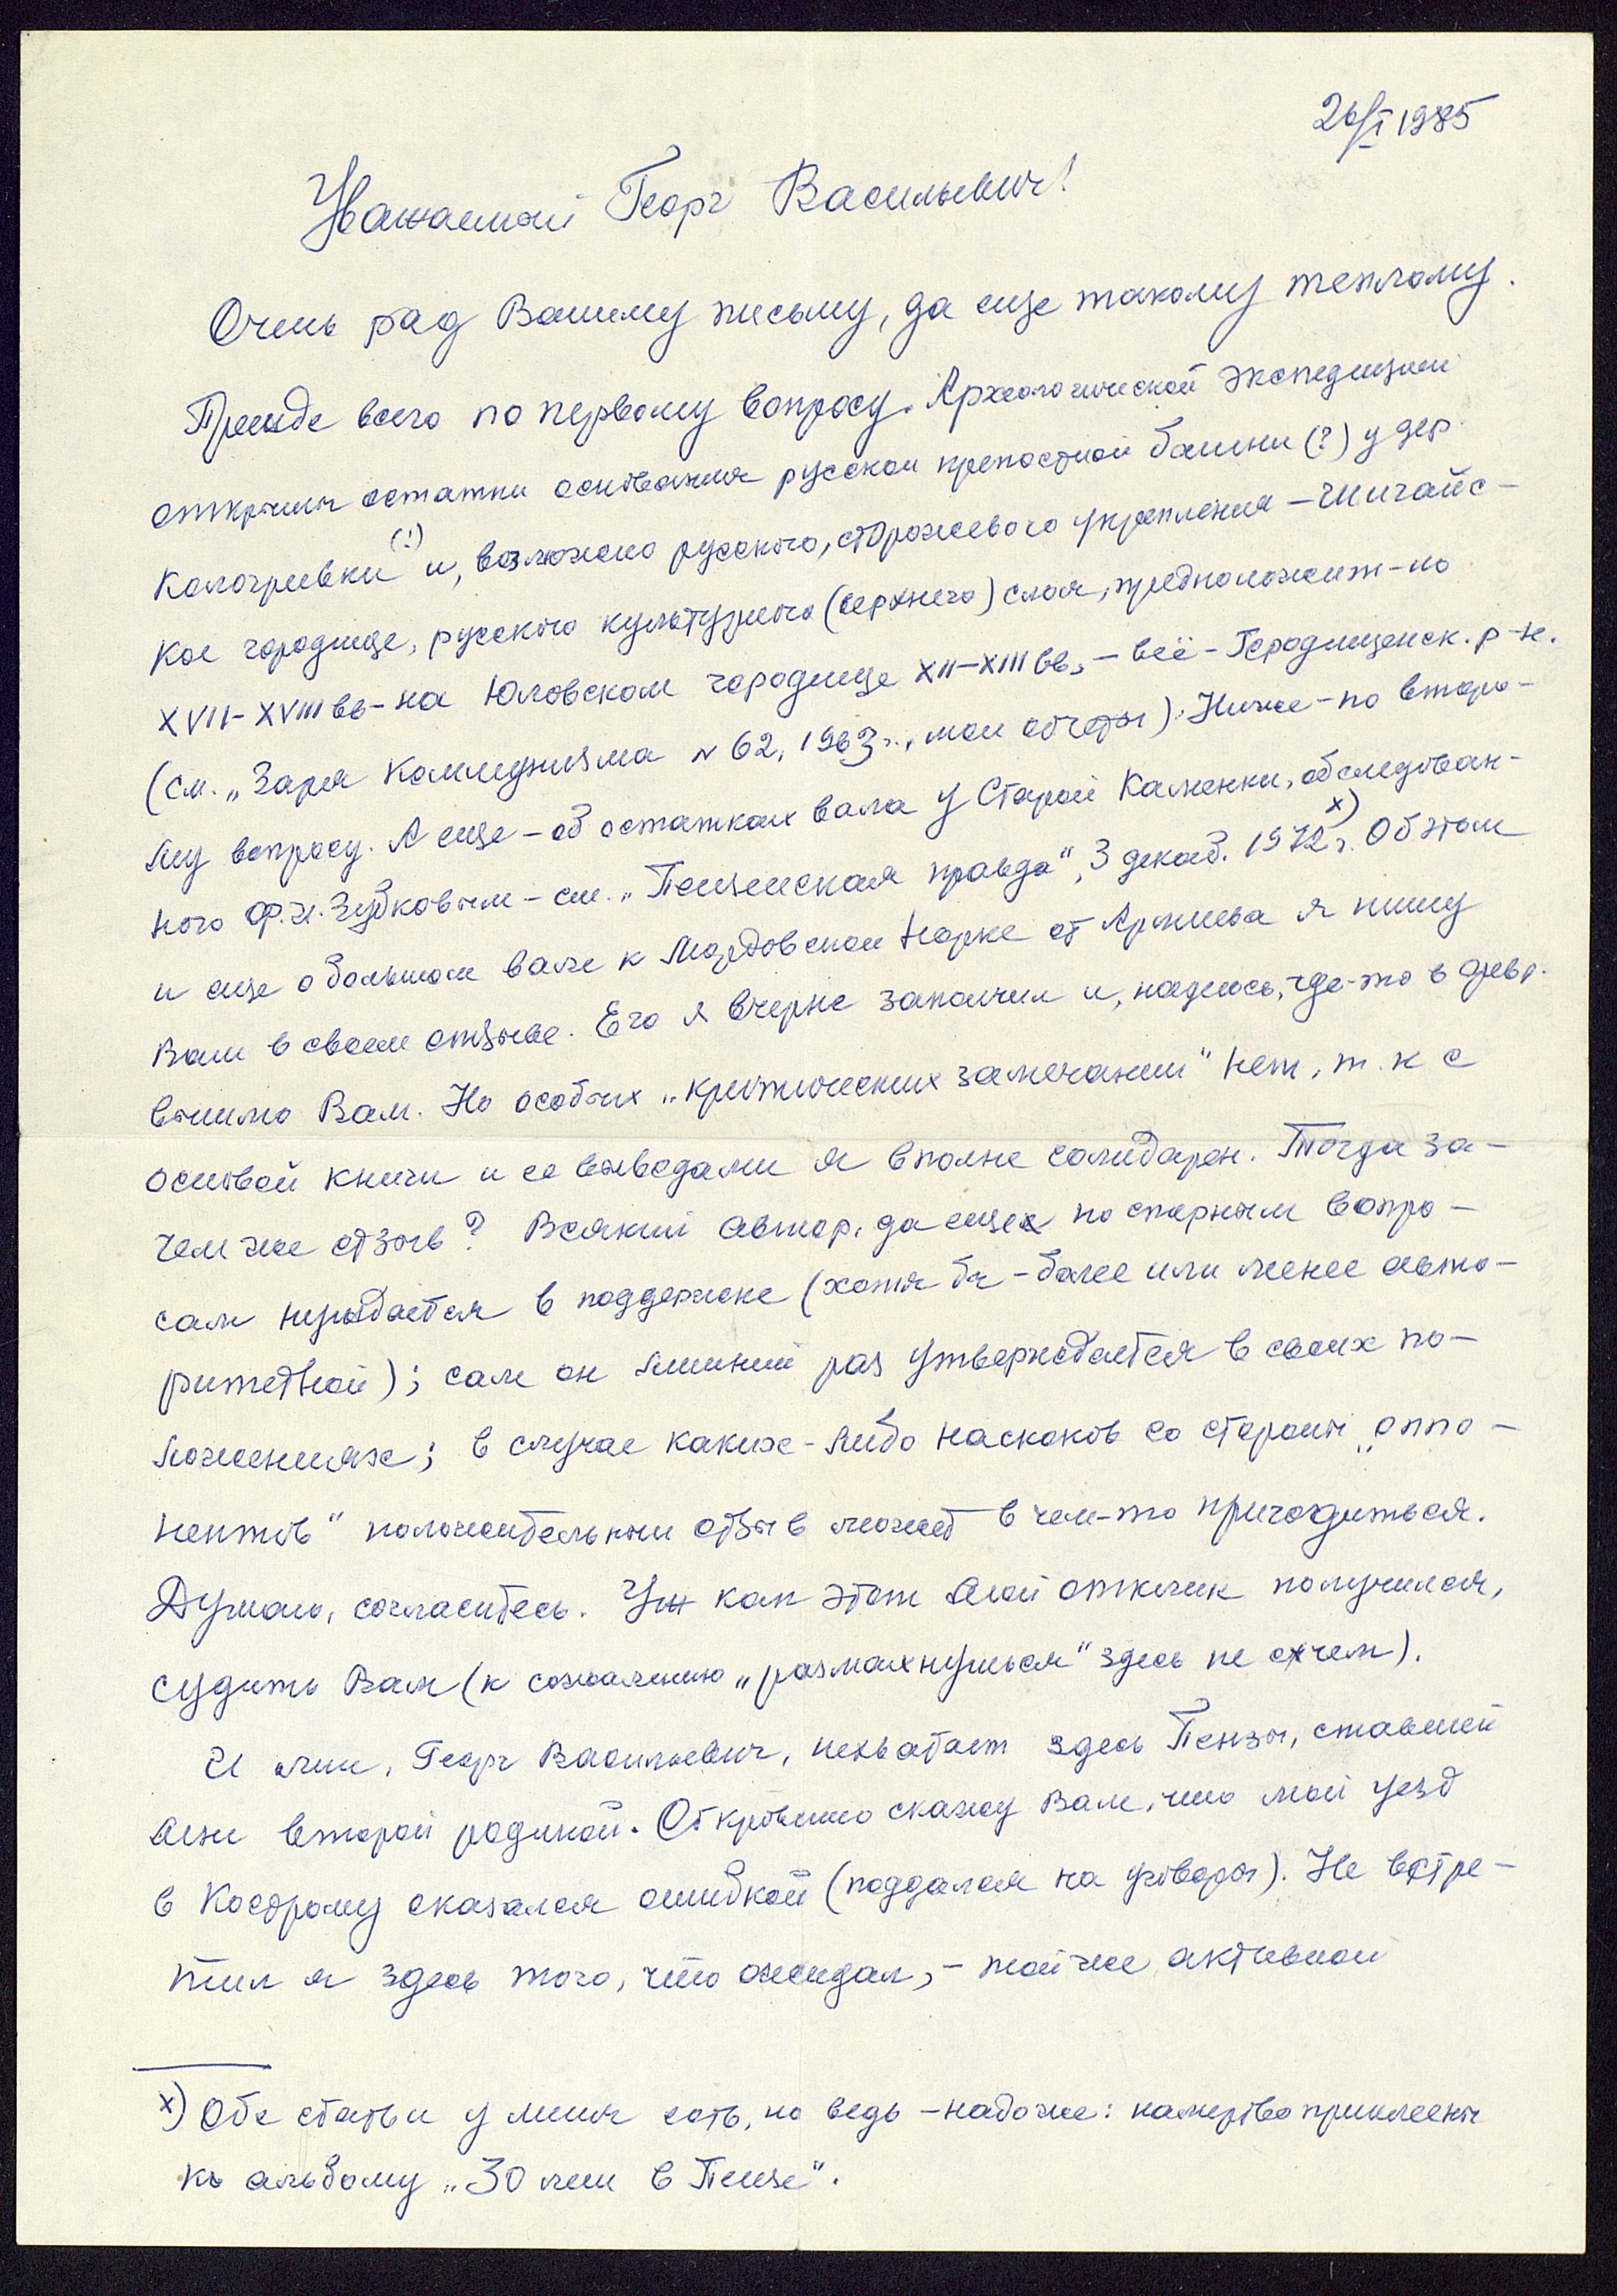 26/I 1985
Уважаемый Георг Васильевич!
Очень рад Вашему письму, да еще такому теплому.
Прежде всего по первому вопросу. Археологической экспедицией
открыты остатки основания русской крепостной башни (?) у дер.
Кологривки (!) и, возможно русского, сторожевого укрепления – Чичайс-
кое городище, русского культурного (верхнего) слоя, предположит-но
XVII-XVIII вв – на Юловском городище XII-XIII вв, – всё – Городищенск. р-н.
(см. „Заря Коммунизма № 62, 1963 г., мои отчеты). Ниже – по второ-
му вопросу. А еще – об остатках вала у Старой Каменки, обследован-
ного Ф.И. Зубковым – см. „Пензенская правда“, 3 декаб. 1972 г. x) Об этом
и еще о большом вале к Мордовской Норке от Армиева я пишу
Вам в своем отзыве. Его я вчерне закончил и, надеюсь, где-то в февр.
вышлю Вам. Но особых „критических замечаний“ нет, т. к с
основой книги и ее выводами я вполне солидарен. Тогда за-
чем же отзыв? Всякий автор, да еще по спорным вопро-
сам нуждается в поддержке (хотя бы – более или менее авто-
ритетной); сам он лишний раз утверждается в своих по-
ложениях; в случае каких-либо наскоков со стороны „оппо-
нентов“ положительный отзыв может в чем-то пригодиться.
Думаю, согласитесь. Уж как этот мой отклик получился,
судить Вам (к сожалению „размахнуться“ здесь не с чем).
И мне, Георг Васильевич, нехватает здесь Пензы, ставшей
мне второй родиной. Откровенно скажу Вам, что мой уезд
в Кострому оказался ошибкой (поддался на уговоры). Не встре-
тил я здесь того, что ожидал, – той же активной
x) Обе статьи у меня есть, но ведь – надо же: намертво приклеены
к альбому „30 лет в Пензе“.